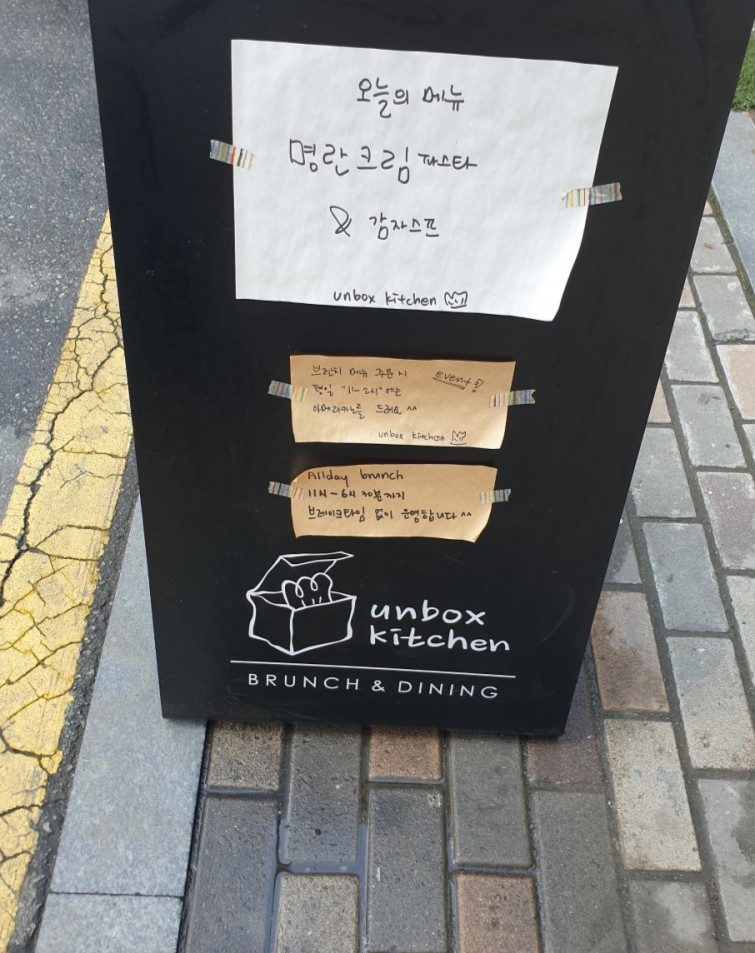 오늘의 메뉴
명란크림파스타
& 감자스프
unbox kitchen
브런치 메뉴 주문 시 event!
평일 "11-2시"에는
아메리카노를 드려요^^
unbox kitchen
Allday brunch
11시~6시 30분까지
브레이크타임 없이 운영합니다^^
unbox
kitchen
BRUNCH & DINING